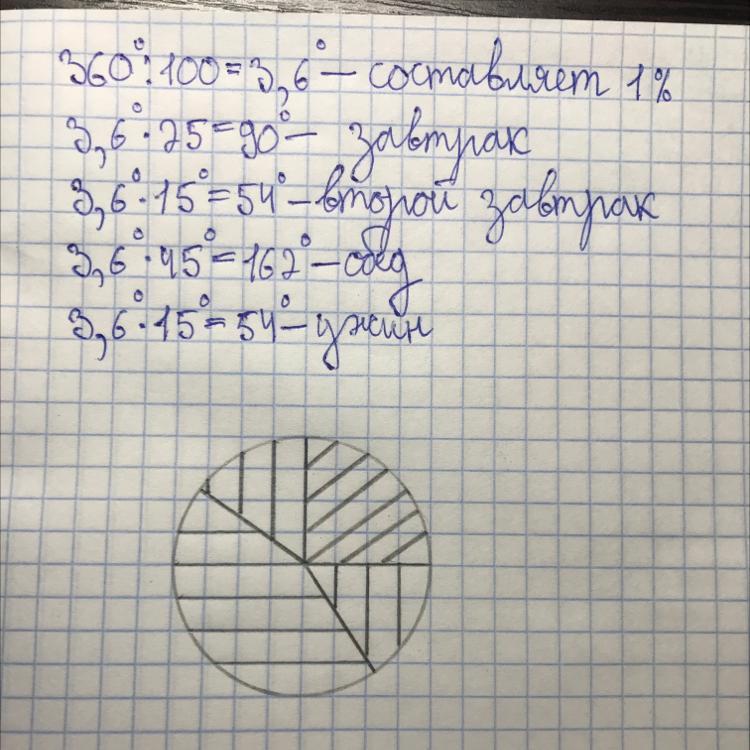 360° : 100 = 3,6° – составляет 1%
3,6° · 25 = 90° – завтрак
3,6° · 15° = 54° – второй завтрак
3,6° · 45° = 162° – обед
3,6° · 15° = 54° – ужин